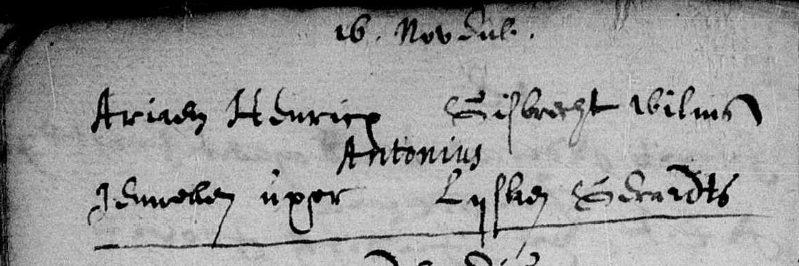 16. Novemb.
Ariaen Henricx Gisbrecht Wilms
Antonius
Jenneken uxor Lysken Gerardts